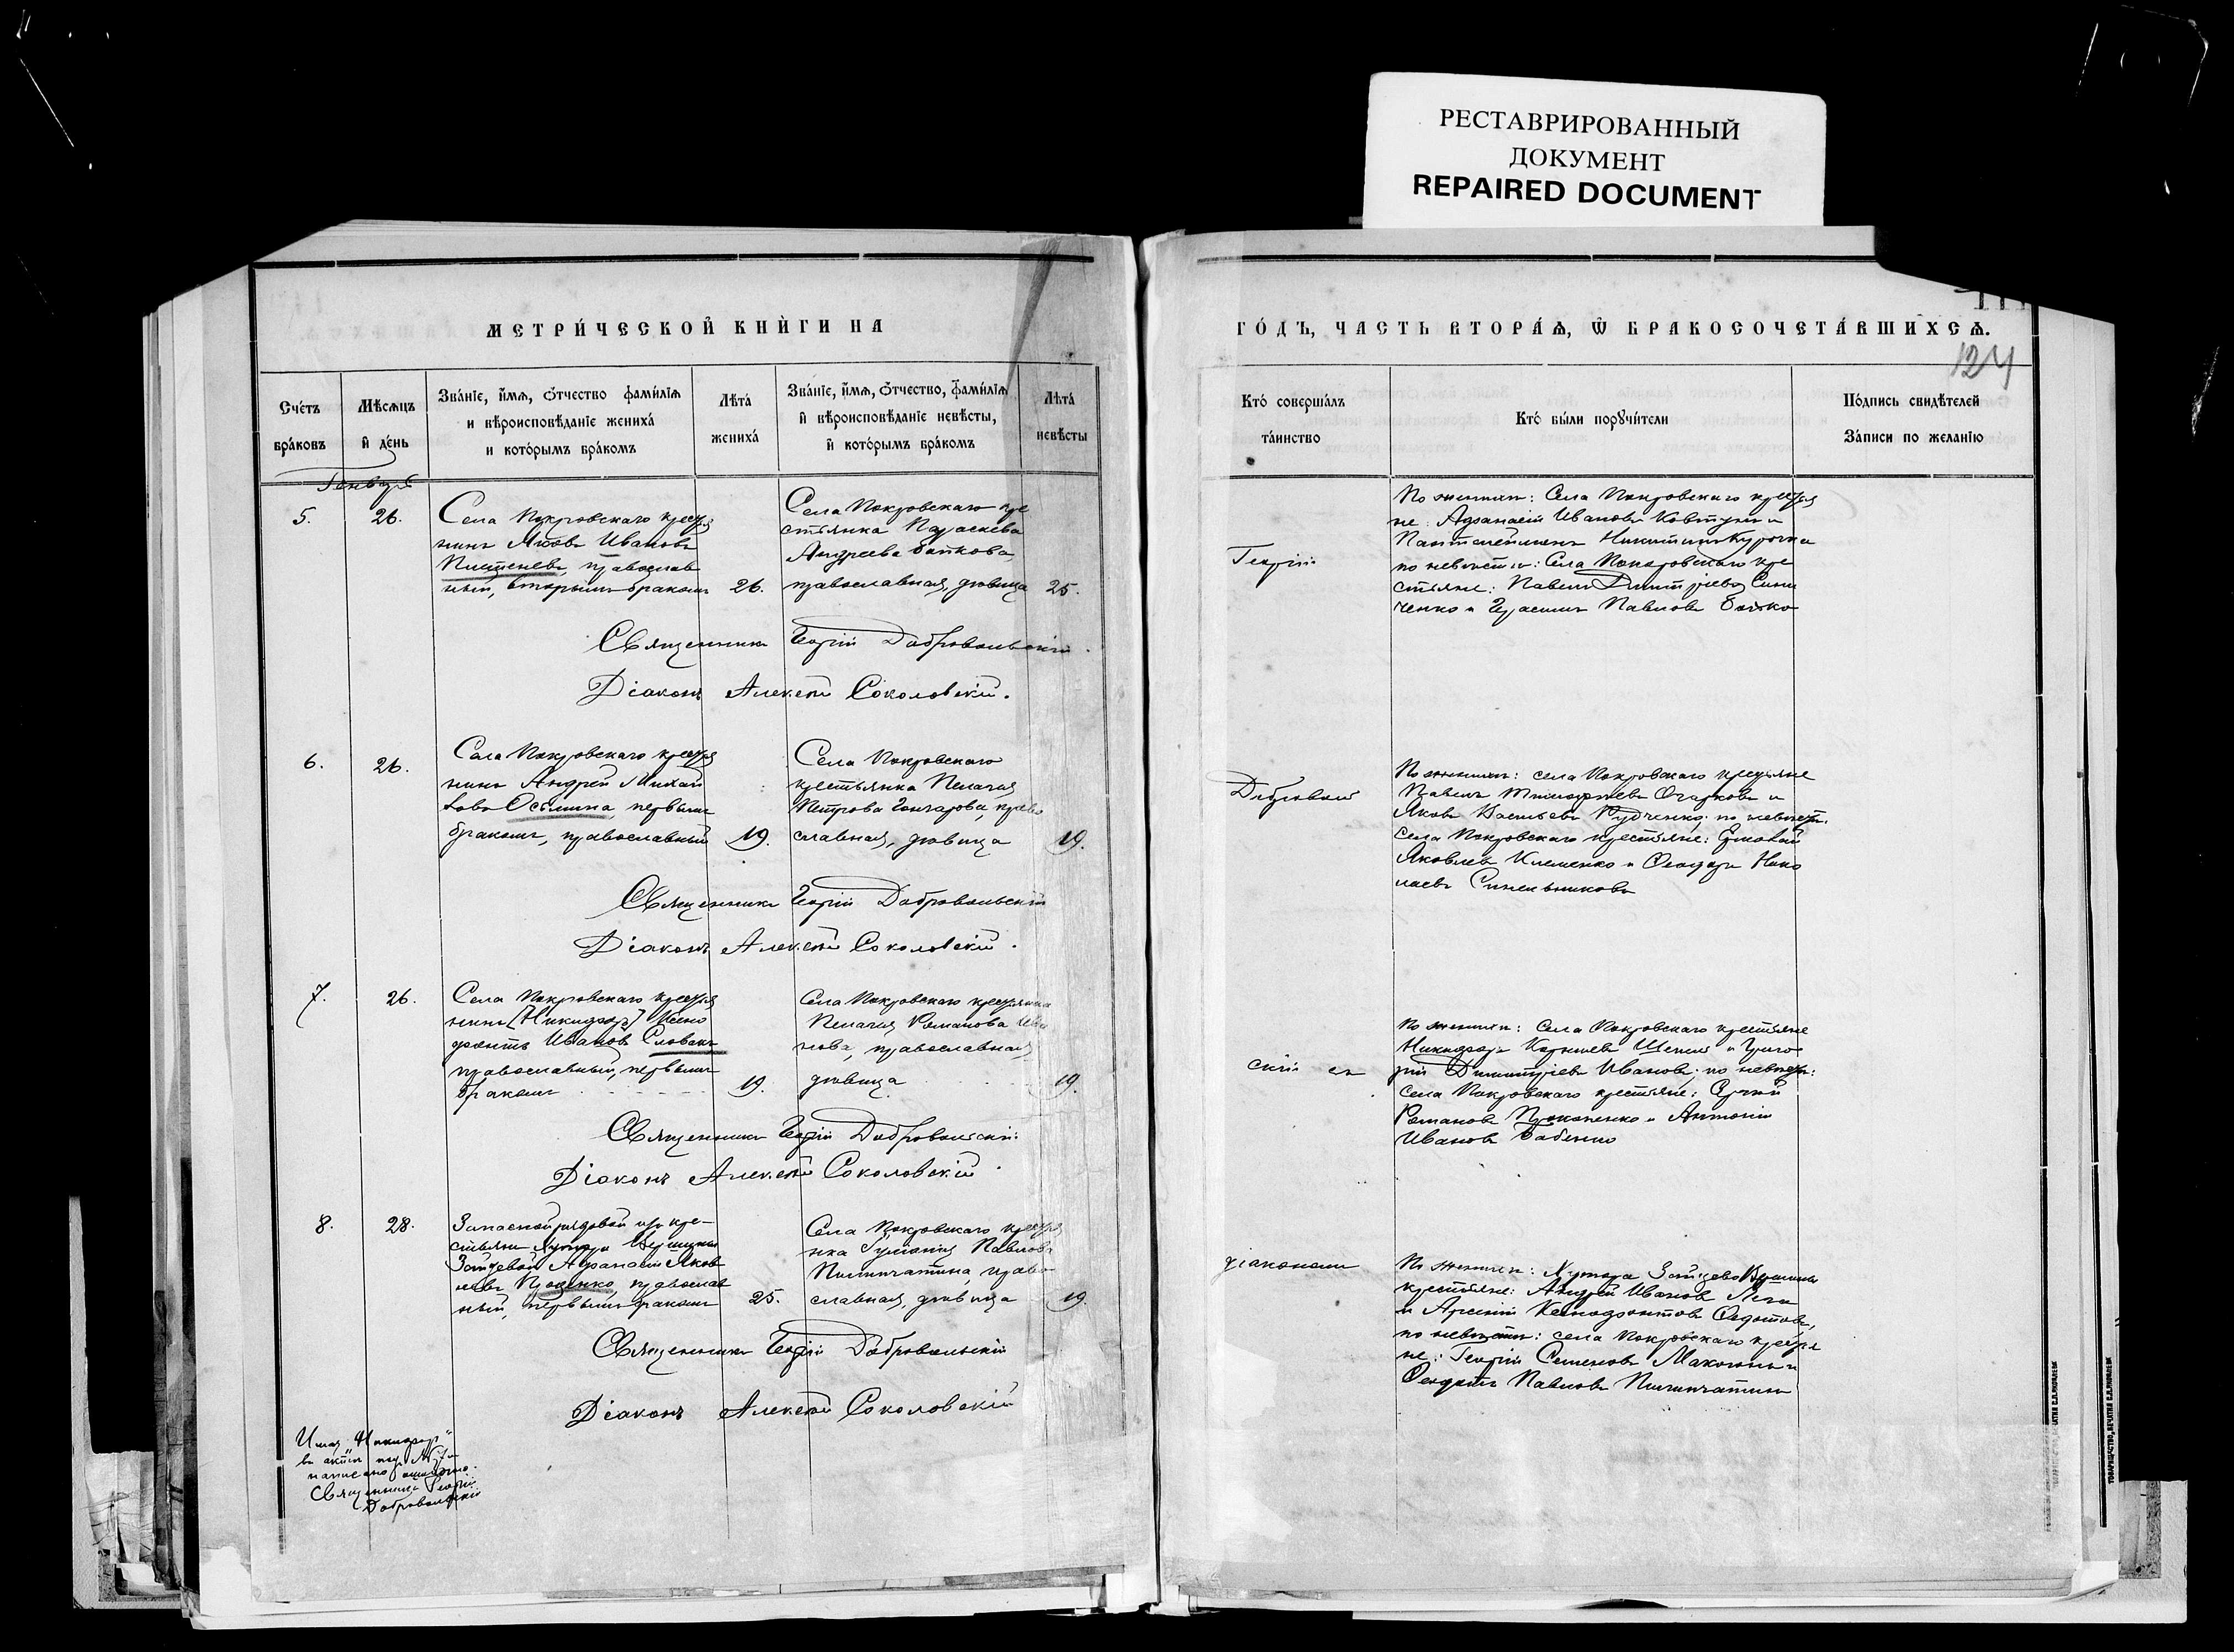 РЕСТАВРИРОВАННЫЙ
ДОКУМЕНТ
REPAIRED DOCUMENT
МЕТРИ́ЧЕСКОЙ КНИ́ГИ НА
ГО́ДЪ, ЧАСТЬ ВТОРА́Ѧ, Ѡ БРАКОСОЧЕТА́ВШИХСѦ.
124
Сче́тъ
бра́ковъ
Мѣ́сѧцъ
и҆ де́нь
Зва́нїе, и҆́мѧ, ѻ҆́тчество фами́лїѧ
и вѣроисповѣ́данїе жениха́
и кото́рымъ бра́комъ
Лѣта́
жениха́
Зва́нїе, и҆́мѧ, ѻ҆́тчество, фами́лїѧ
и҆ вѣроисповѣ́данїе невѣ́сты,
и҆ кото́рымъ бра́комъ
Лѣта́
невѣ́сты
Кто́ соверша́лъ
та́инство
Кто́ бы́ли порꙋчи́тели
По́дпись свидѣ́телей
За́писи по жела́нїю
Генваря
5.
26.
Села Покровскаго крестья
нинъ Іаковъ Ивановъ
православ
ный, вторымъ бракомъ
26.
Села Покровскаго кре
стьянка Параскева
Андреева Бойкова,
православная, дѣвица
25.
Георгій
По женихѣ: Села Покровскаго крестья
не: Афанасій Ивановъ Ковтунъ и
Пантелеймонъ Никитинъ
по невѣстѣ: Села Покровскаго кре
стьяне: Павелъ Димитріевъ Сини
ченко и Герасимъ Павловъ Бойко
Священникъ Георгій Добровольскій.
Діаконъ Алексѣй Соколовскій.
6.
26.
Села Покровскаго крестья
нинъ Андрей Михаи
ловъ Осьмина, первымъ
бракомъ, православный
19.
Села Покровскаго
крестьянка Пелагія
Петрова Гончарова, право
славная, дѣвица
19.
Доброволь
По женихѣ: села Покровскаго крестьяне
Павелъ Тимофѣевъ Очаковъ и
Яковъ Васильевъ Рудченко; по невѣстѣ:
села Покровскаго крестьяне: Ермолай
Яковлевъ Клименко и Ѳеодоръ Нико
лаевъ Синельниковъ
Священникъ Георгій Добровольскій
Діаконъ Алексѣй Соколовскій.
7.
26.
Села Покровскаго крестья
нинъ [Никифоръ] Ксено
фонтъ Ивановъ Словакъ
православный, первымъ
бракомъ
19.
Села Покровскаго крестьянка
Пелагія Романова
нова, православная,
дѣвица
19.
скій съ
По женихѣ: Села Покровскаго крестьяне
Никифоръ Корніевъ и Григо
рій Димитріевъ Ивановъ; по невѣстѣ:
села Покровскаго крестьяне: Сергій
Романовъ Прокопенко и Антоній
Ивановъ Бабенко
Священникъ Георгій Добровольскій
Діаконъ Алексѣй Соколовскій.
8.
28.
Запасной рядовой изъ кре-
стьянъ хутора
Зайцевой Афанасій Яков
левъ Проценко, православ
ный, первымъ бракомъ
25.
Села Покровскаго крестья
нка Іуліанія Павлова
право
славная, дѣвица
19.
діакономъ
По женихѣ: Хутора Зайцево
крестьяне: Андрей Ивановъ
и Арсеній Ксенофонтовъ Ѳедотовъ,
по невѣстѣ: села Покровскаго крестья
не: Георгій Семеновъ Макогонъ и
Ѳеодотъ Павловъ
Священникъ Георгій Добровольскій
Діаконъ Алексѣй Соколовскій
Имя „Никифоръ“
въ актѣ подъ № 7-мъ
написано ошибочно.
Священникъ Георгій
Добровольскій